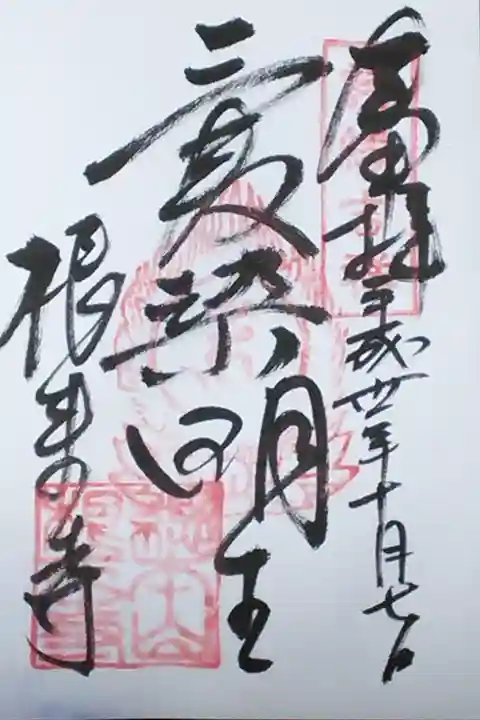 奉拝 平成卅年十月七日
愛染明王
根来寺